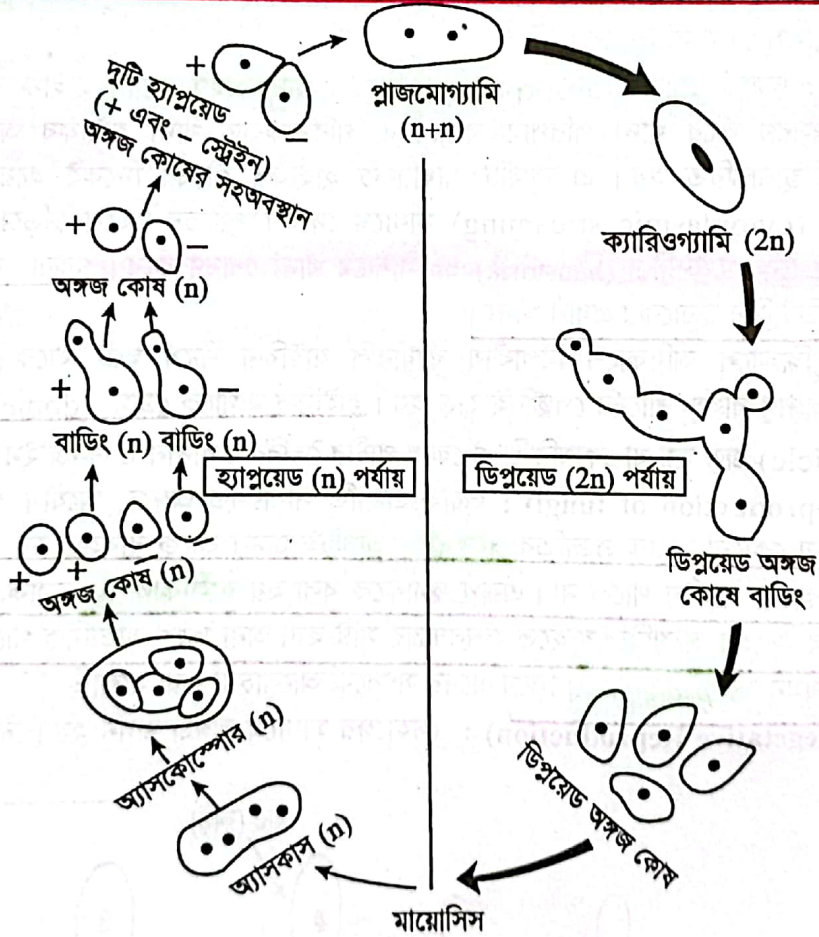 দুটি হ্যাপ্লয়েড
(+ এবং – স্ট্রেইন)
অঙ্গজ কোষের সহঅবস্থান
+
–
প্লাজমোগ্যামি
(n+n)
ক্যারিওগ্যামি (2n)
+
–
অঙ্গজ কোষ (n)
+
–
বাডিং (n) বাডিং (n)
হ্যাপ্লয়েড (n) পর্যায়
ডিপ্লয়েড (2n) পর্যায়
+
+
–
–
অঙ্গজ কোষ (n)
ডিপ্লয়েড অঙ্গজ
কোষে বাডিং
অ্যাসকোস্পোর (n)
ডিপ্লয়েড অঙ্গজ কোষ
অ্যাসকাস (n)
মায়োসিস